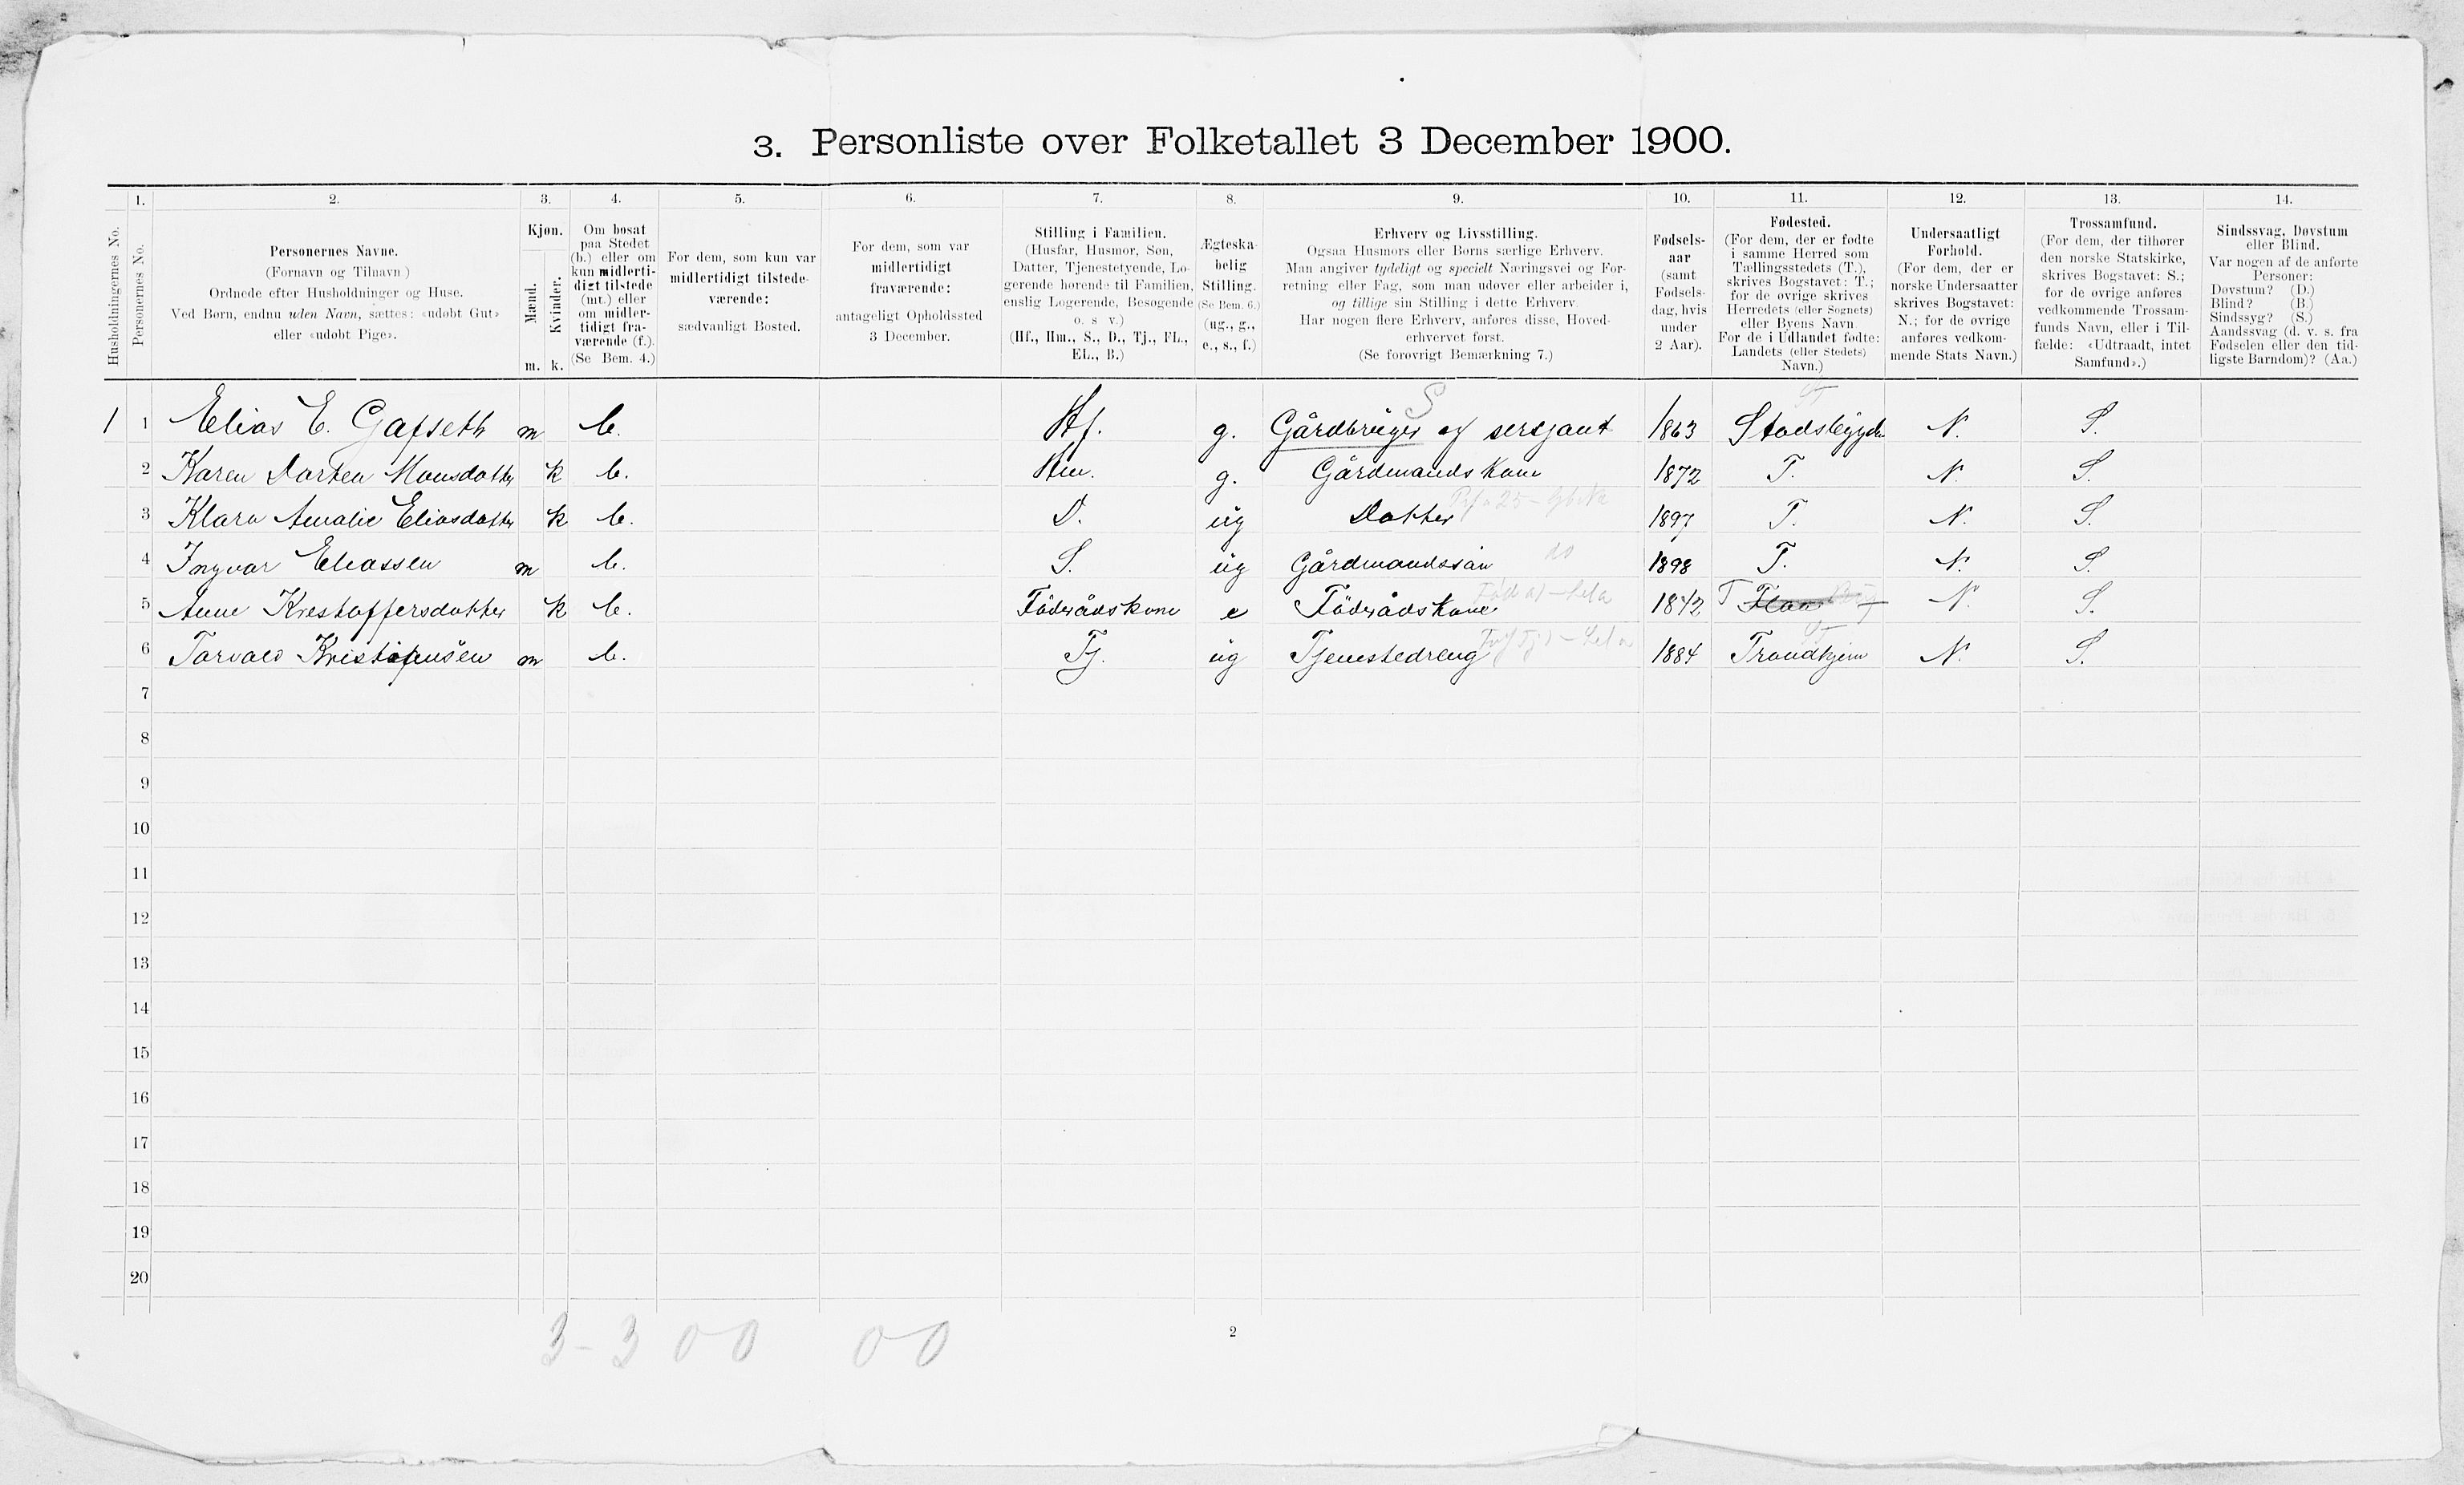 3. Personliste over Folketallet 3 December 1900.
1. 2. 3. 4. 5. 6. 7. 8. 9. 10. 11. 12. 13. 14.
Husholdningernes No.
Personernes No.
Personernes Navne.
(Fornavn og Tilnavn.)
Ordnede efter Husholdninger og Huse.
Ved Børn, endnu uden Navn, sættes: «udøbt Gut»
eller «udøbt Pige».
Kjøn.
Mænd.
Kvinder.
m. k.
Om bosat
paa Stedet
(b.) eller om
kun midlerti-
digt tilstede
(mt.) eller
om midler-
tidigt fra-
værende (f.).
(Se Bem. 4.)
For dem, som kun var
midlertidigt tilstede-
værende:
sædvanligt Bosted.
For dem, som var
midlertidigt
fraværende:
antageligt Opholdssted
3 December.
Stilling i Familien.
(Husfar, Husmor, Søn,
Datter, Tjenestetyende, Lo-
gerende hørende til Familien,
enslig Logerende, Besøgende
o. s. v.)
(Hf., Hm., S., D., Tj., FL.,
EL., B.)
Ægteska-
belig
Stilling.
(Se Bem. 6.)
(ug., g.,
e., s., f.)
Erhverv og Livsstilling.
Ogsaa Husmors eller Børns særlige Erhverv.
Man angiver tydeligt og specielt Næringsvei og For-
retning eller Fag, som man udøver eller arbeider i,
og tillige sin Stilling i dette Erhverv.
Har nogen flere Erhverv, anføres disse, Hoved-
erhvervet først.
(Se forøvrigt Bemærkning 7.)
Fødsels-
aar
(samt
Fødsels-
dag, hvis
under
2 Aar).
Fødested.
(For dem, der er fødte
i samme Herred som
Tællingsstedets (T.),
skrives Bogstavet: T.;
for de øvrige skrives
Herredets (eller Sognets)
eller Byens Navn.
For de i Udlandet fødte:
Landets (eller Stedets)
Navn.)
Undersaatligt
Forhold.
(For dem, der er
norske Undersaatter
skrives Bogstavet:
N.; for de øvrige
anføres vedkom-
mende Stats Navn.)
Trossamfund.
(For dem, der tilhører
den norske Statskirke,
skrives Bogstavet: S.;
for de øvrige anføres
vedkommende Trossam-
funds Navn, eller i Til-
fælde: «Udtraadt, intet
Samfund».)
Sindssvag, Døvstum
eller Blind.
Var nogen af de anførte
Personer:
Døvstum? (D.)
Blind? (B.)
Sindssyg? (S.)
Aandssvag (d. v. s. fra
Fødselen eller den tid-
ligste Barndom)? (Aa.)
S T
1 1 Elias E. Gafseth m b. Hf. g. Gårdbruger og sersjant 1863 Stadsbygden N. S.
2 Karen Dorten Monsdatter k b. Hm. g. Gårdmands Kone 1872 T. N. S.
3 Klara Amalie Eliasdatter k b. D. ug Datter 1897 T. N. S.
4 Ingvar Eliassen m b. S. ug Gårdmandssøn do 1898 T. N. S.
5 Anne Krestoffersdatter k b. Föderådskone e Föderådskone 1842 T Flaa N. S.
6 Torvald Kristofersen m b. Tj. ug Tjenestedreng 1884 Trondhjem N. S.
7
8
9
10
11
12
13
14
15
16
17
18
19
20
3 - 3 0 0 0 0
2